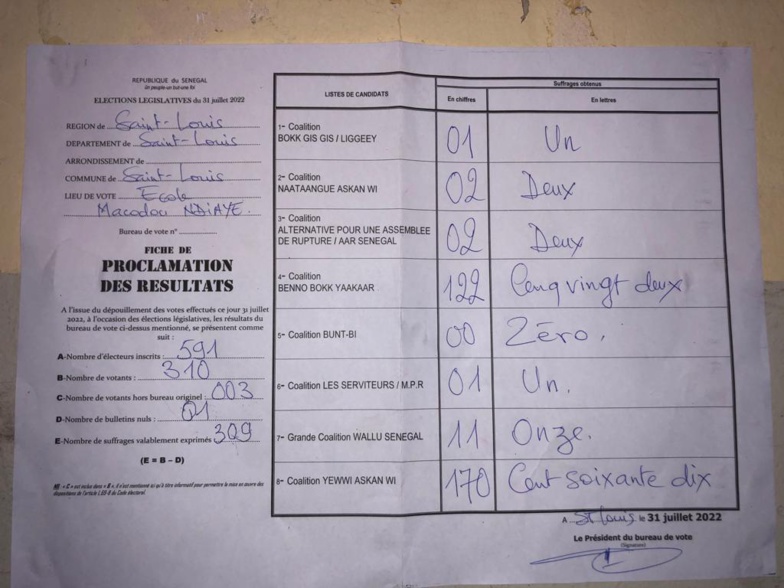 REPUBLIQUE du SENEGAL
Un peuple un but une foi
ELECTIONS LEGISLATIVES du 31 juillet 2022
REGION de Saint-Louis
DEPARTEMENT de Saint-Louis
ARRONDISSEMENT de
COMMUNE de Saint-Louis
LIEU DE VOTE Ecole
Macodou NDIAYE.
Bureau de vote n°
FICHE DE
PROCLAMATION
DES RESULTATS
A l'issue du dépouillement des votes effectués ce jour 31 juillet
2022, à l'occasion des élections législatives, les résultats du
bureau de vote ci-dessus mentionné, se présentent comme
suit :
A-Nombre d'électeurs inscrits : 591
B-Nombre de votants : 310
C-Nombre de votants hors bureau originel : 003
D-Nombre de bulletins nuls : 01
E-Nombre de suffrages valablement exprimés : 309
(E = B – D)
NB. « C » est inclus dans « B », il n'est mentionné ici qu'à titre informatif pour permettre la mise en œuvre des
dispositions de l'article L.69-8 du Code électoral.
LISTES DE CANDIDATS
Suffrages obtenus
En chiffres
En lettres
1- Coalition
BOKK GIS GIS / LIGGEEY
01 Un
2- Coalition
NAATAANGUE ASKAN WI
02 Deux
3- Coalition
ALTERNATIVE POUR UNE ASSEMBLEE
DE RUPTURE / AAR SENEGAL
02 Deux
4- Coalition
BENNO BOKK YAAKAAR
122 Cenq vingt deux
5- Coalition BUNT-BI
00 Zéro.
6- Coalition LES SERVITEURS / M.P.R
01 Un.
7- Grande Coalition WALLU SENEGAL
11 Onze.
8- Coalition YEWWI ASKAN WI
170 Cent soixante dix
A St Louis le 31 juillet 2022
Le Président du bureau de vote
(Signature)